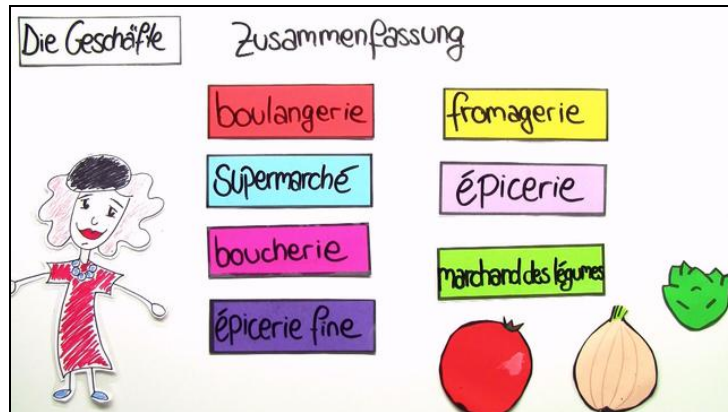 Die Geschäfte
Zusammenfassung
boulangerie
supermarché
boucherie
épicerie fine
fromagerie
épicerie
marchand des légumes